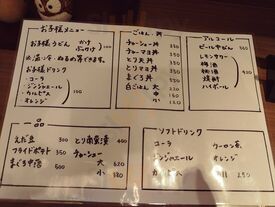 お子様メニュー
お子様うどん かけ
ぶっかけ 300
※温・冷・ぬるめ等できます。
お子様ドリンク
・コーラ
・ジンジャエール
・カルピス
・オレンジ
200
ごはん・丼
チャーシュー丼 350
チャーマヨ丼 380
とり天丼
とりマヨ丼
まぐろ丼
白ごはん 大
中
小
アルコール
ビール中びん
レモンサワー
梅酒
焼酎
ハイボール
420
一品
えだ豆 300
フライドポテト 350
まぐろ中落 500
とり南蛮漬 400
チャーシュー
大 620
小 320
ソフトドリンク
コーラ ウーロン茶
ジンジャエール オレンジ
カルピス 250